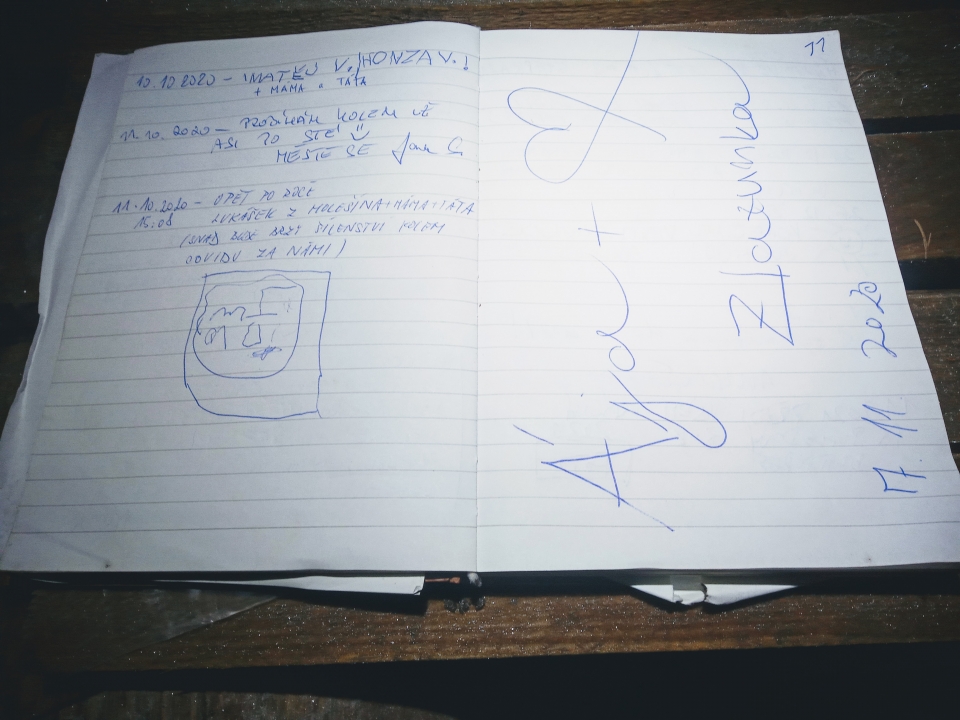 10.10 2020 – MATĚJ V. HONZA V.!
+ MÁMA + TÁTA
11.10.2020 – PROBÍHÁM KOLEM VĚ
ASI PO STÉ Ü
MĚJTE SE
11.10.2020 – OPĚT PO ROCE
15:08 LUKÁŠEK Z HOLEŠÍNA+MÁMA+TÁTA
(SNAD BUDE BRZY ŠÍLENSTVÍ KOLEM
COVIDU ZA NÁMI)
11
Ája +
Zlatunka
17. 11 2020